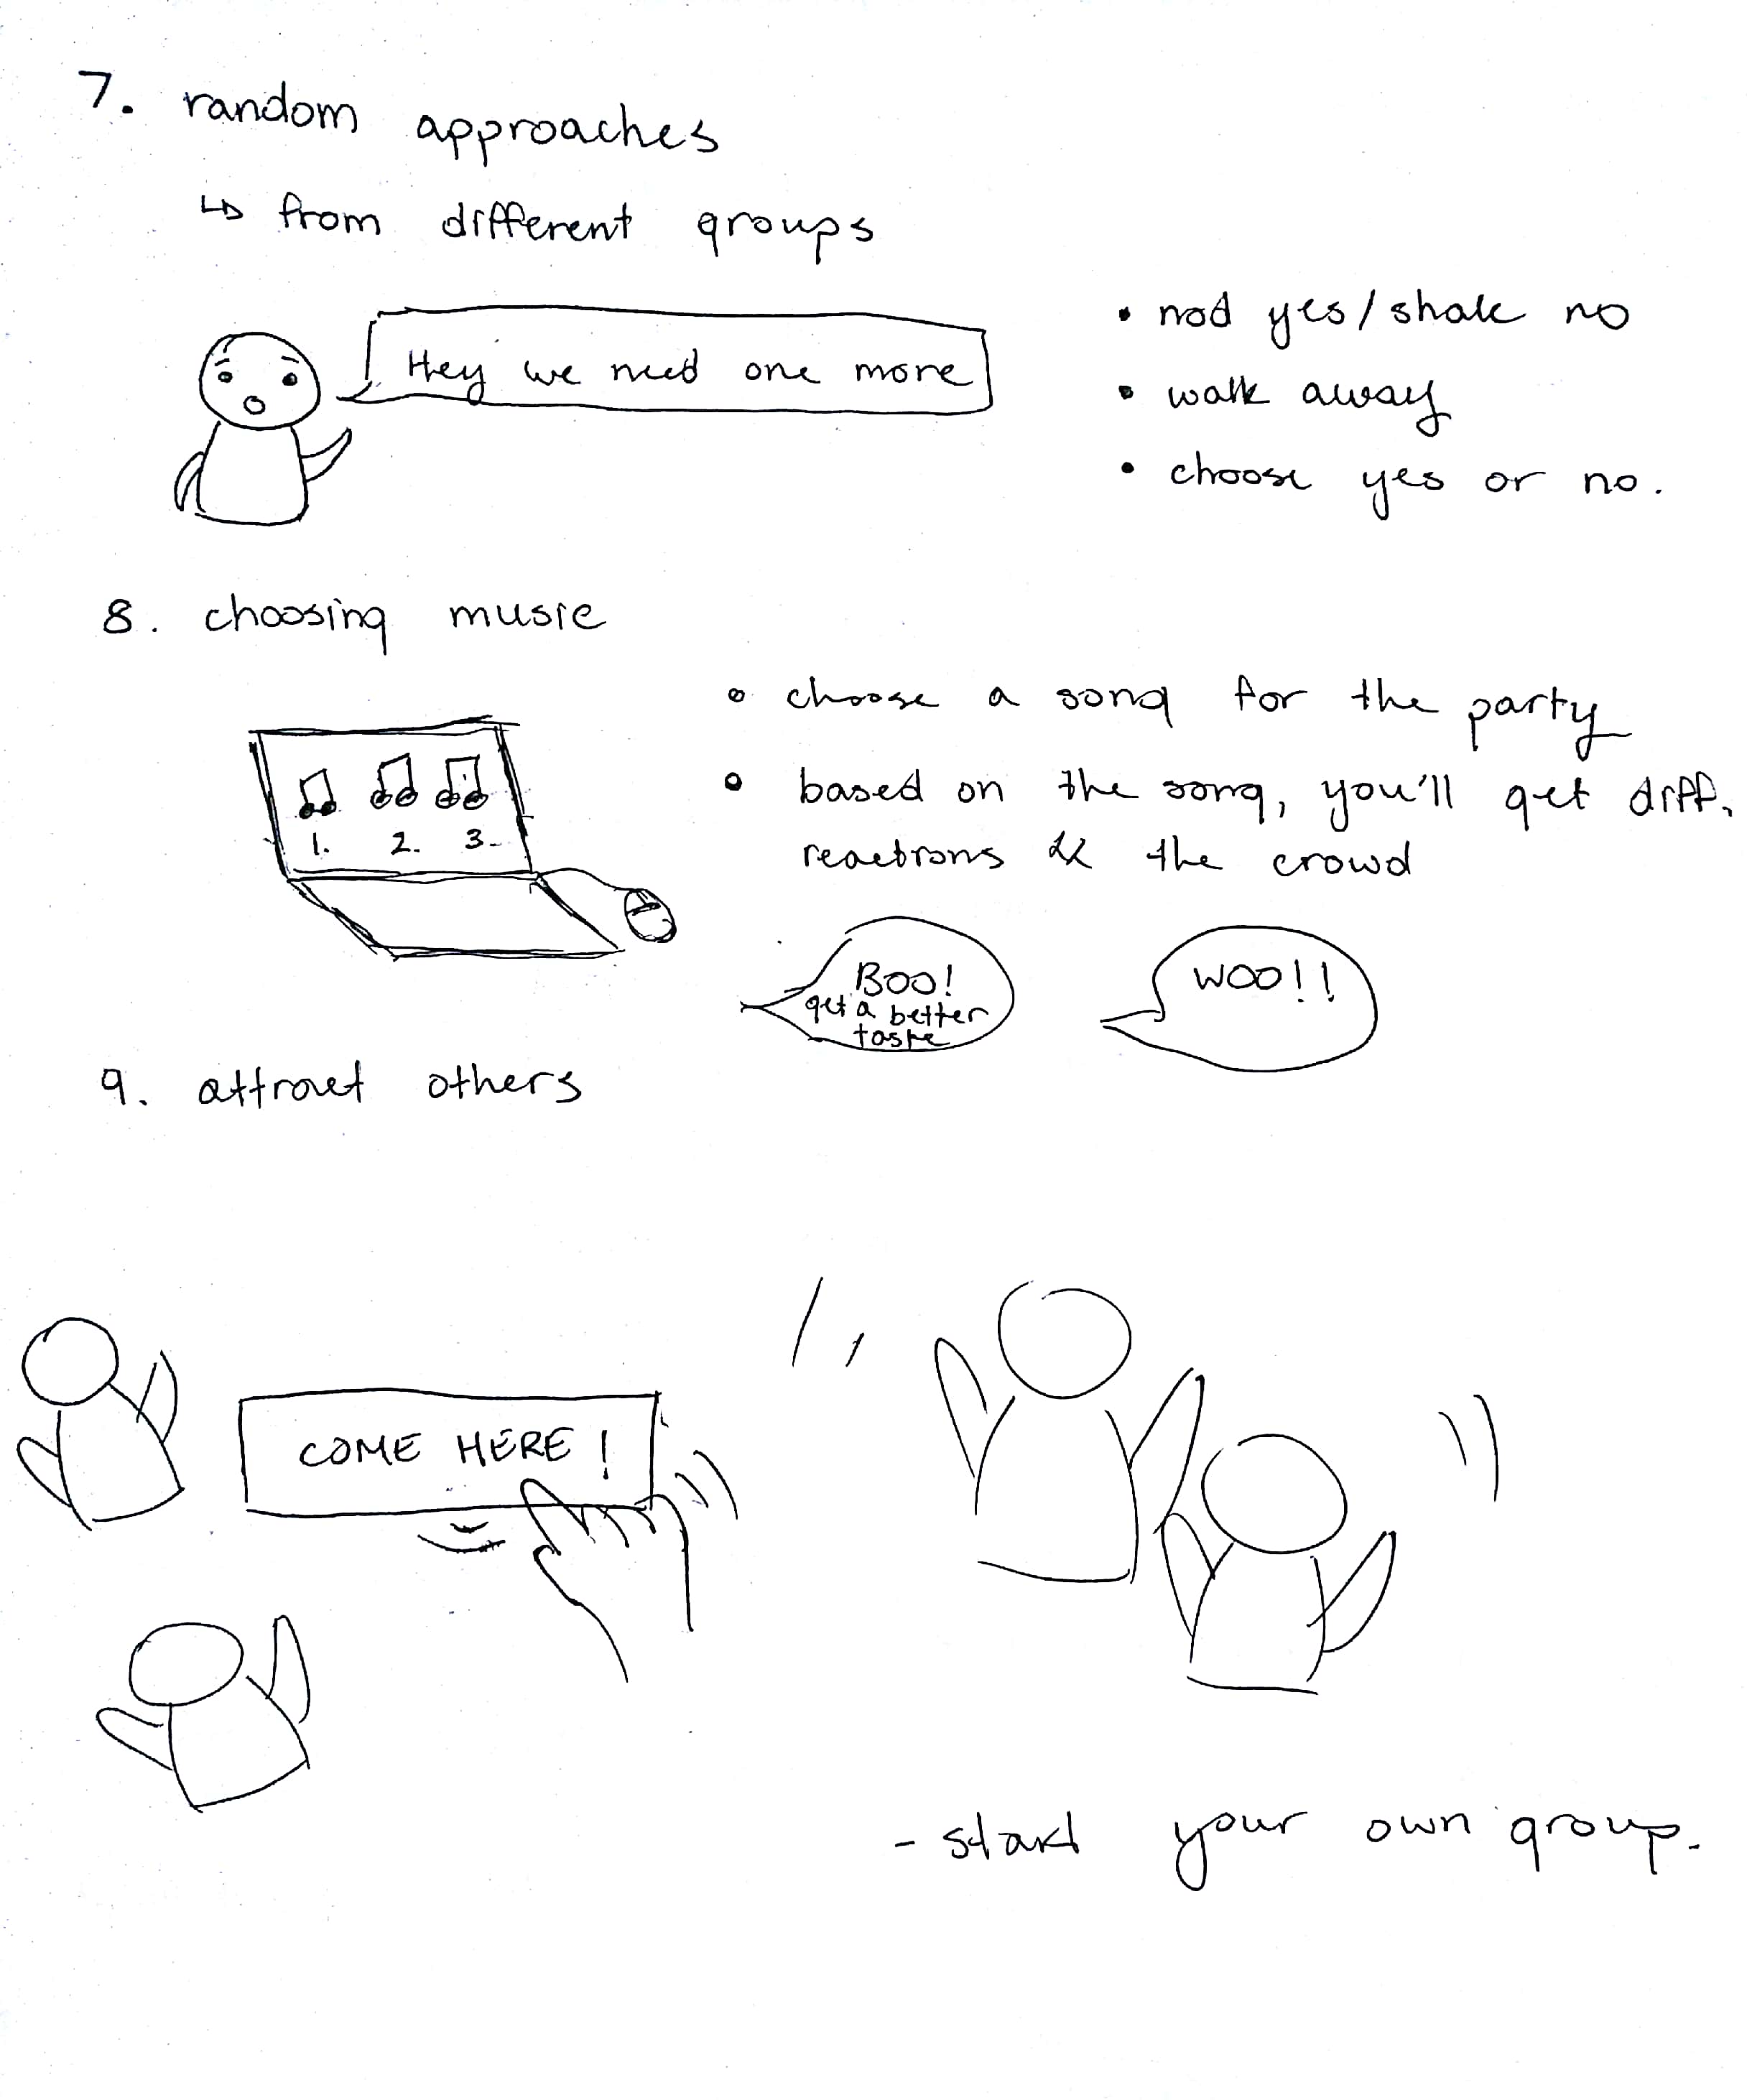 7. random approaches
↳ from different groups
Hey we need one more
• nod yes/shake no
• walk away
• choose yes or no.
8. choosing music
• choose a song for the party
• based on the song, you'll get diff.
reactions & the crowd
1. 2. 3.
BOO!
get a better
taste
WOO!!
9. attract others
COME HERE!
- start your own group.